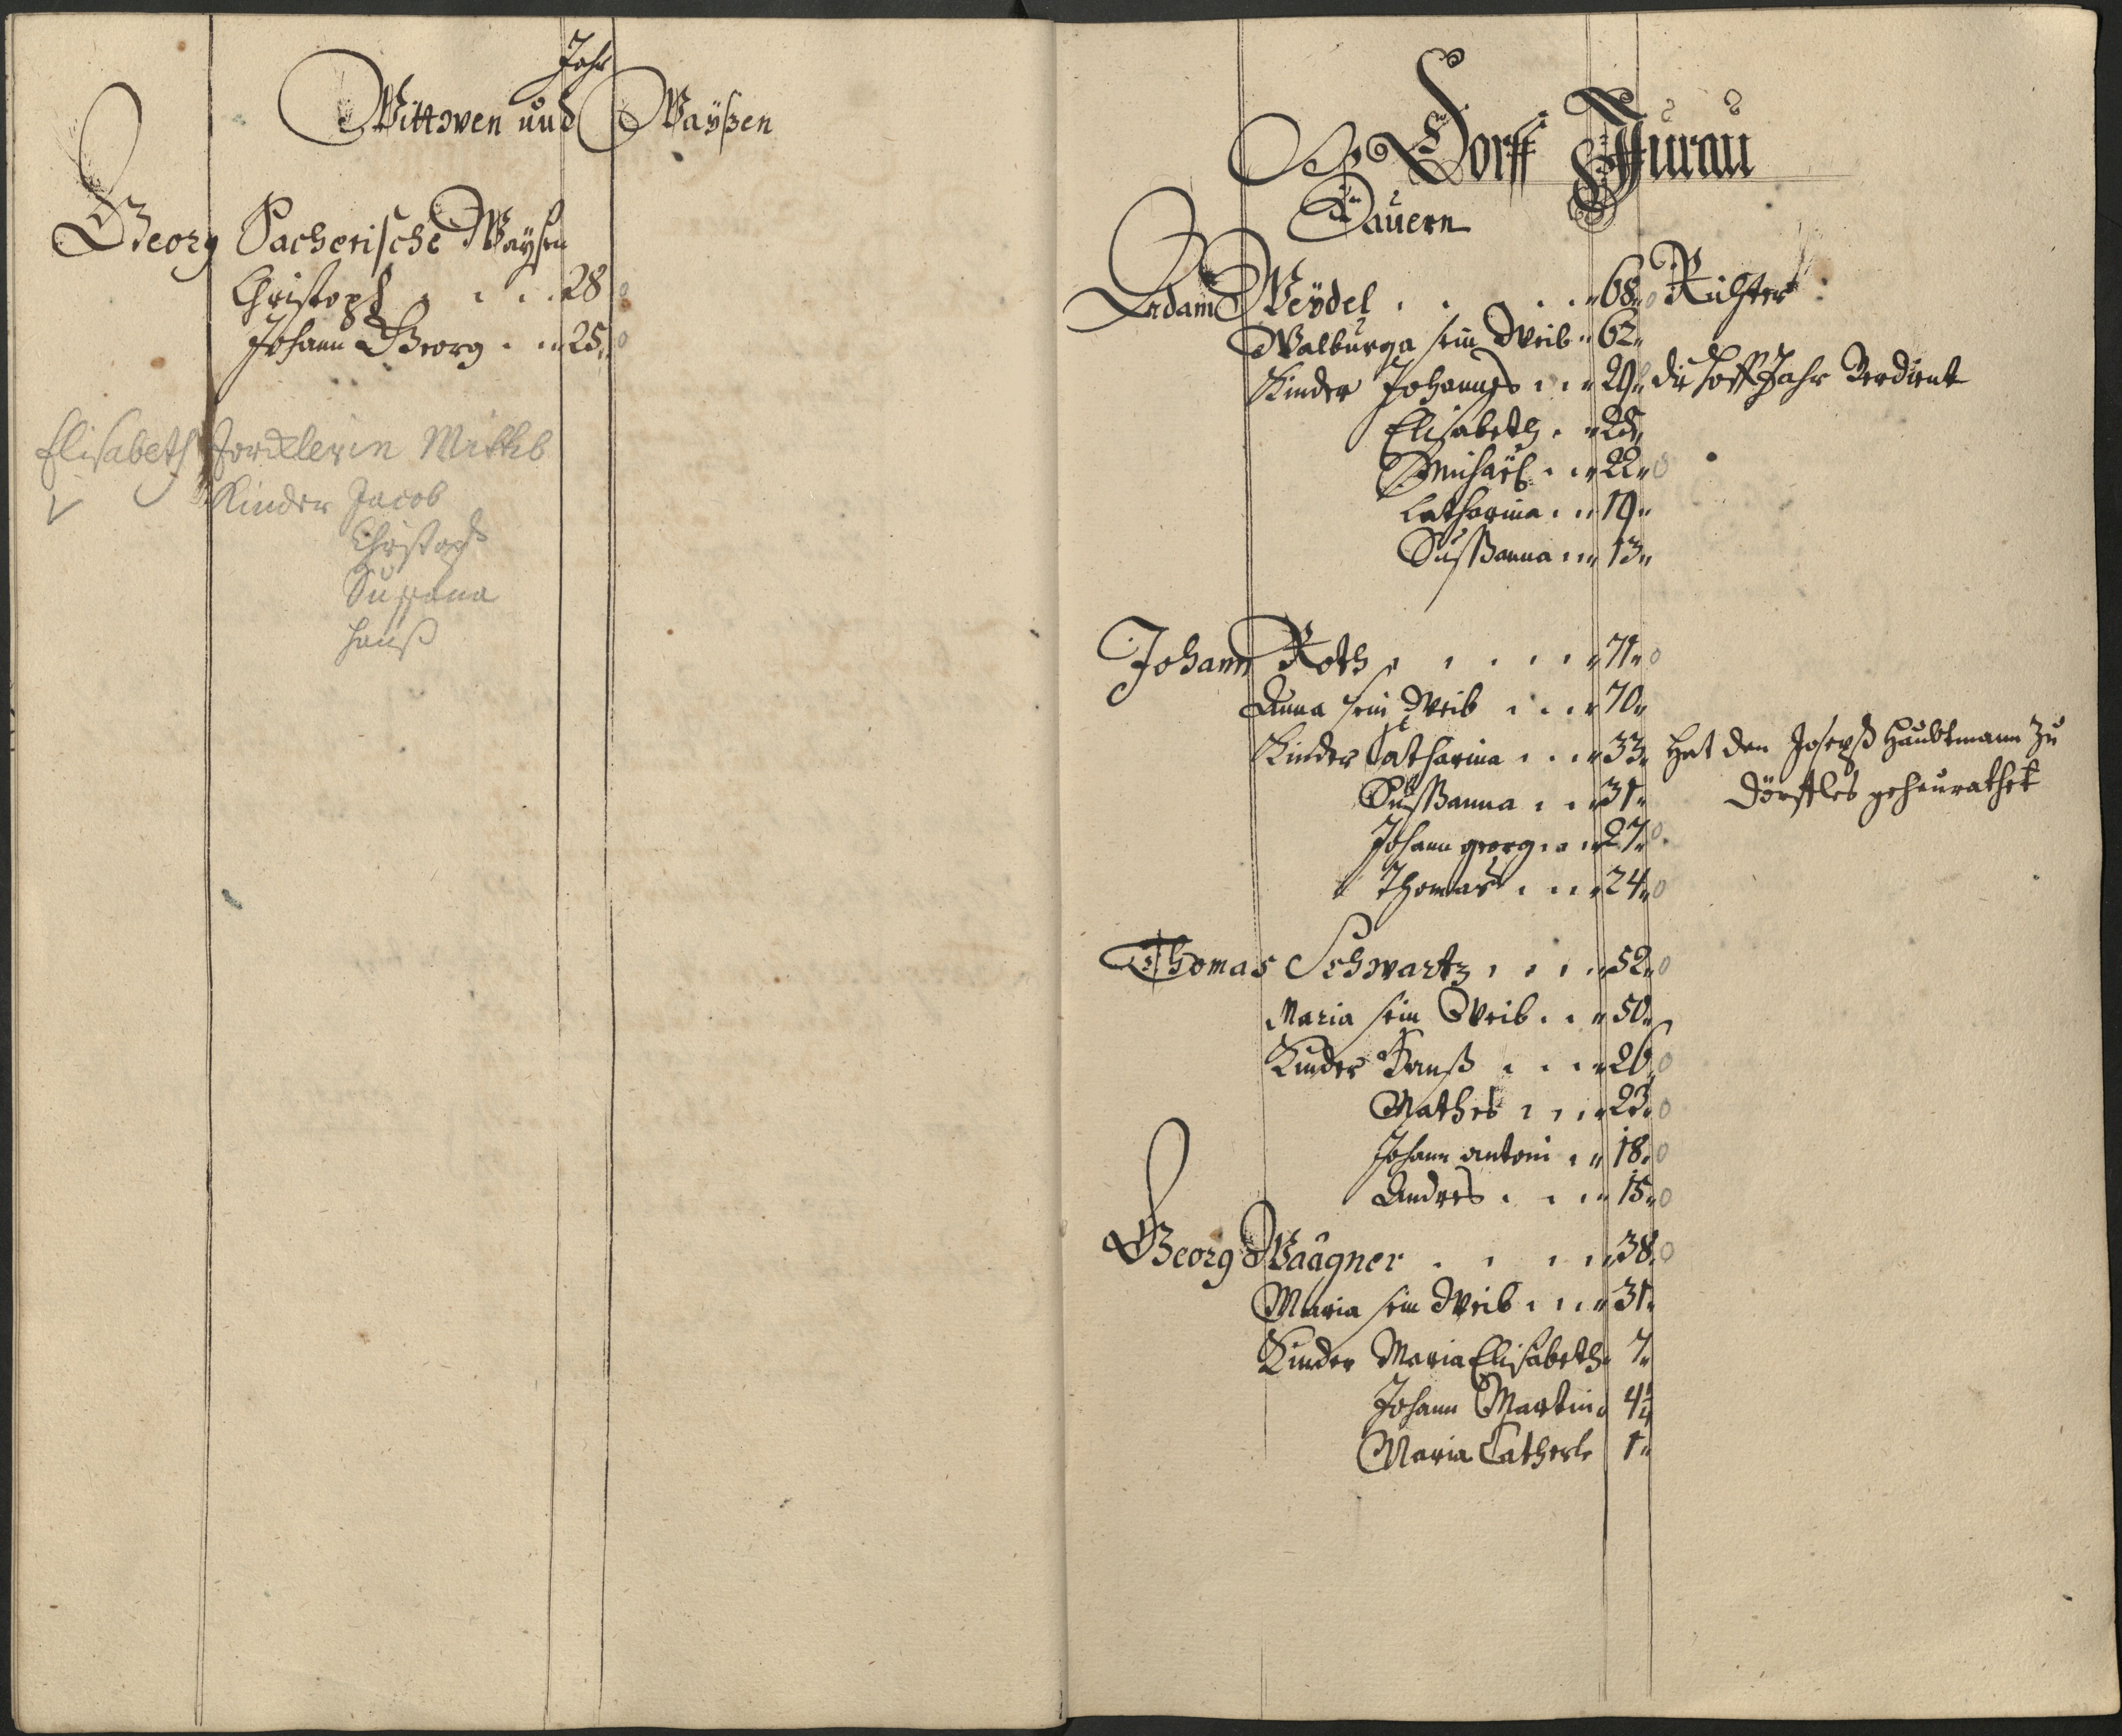 Jahr
Wittwen und Wayßen
Georg Pacherische Waysen
Christoph 28
Johann Georg 25
Elisabeth Wittib
Kinder Jacob
Christoph
Susana
Hanß
Dorff
Bauern
Adam Weydel 68 Richter
Walburga sein Weib 62
Kinder Johannes 29 die hoff Jahr Verdient
Elisabeth 25
Michaël 22
Catharina 19
Sußanna 13
Johann Roth 71
Anna sein Weib 70
Kinder Catharina 33 Hat den Joseph Haubtmann zu
Sußanna 31 Dörffles geheurathet
Johann georg 27
Thomas 24
Thomas Schwartz 52
Maria sein Weib 50
Kinder Hanß 26
Mathes 23
Johann antoni 18
Andres 15
Georg Waagner 38
Maria sein Weib 31
Kinder Maria Elisabeth 7
Johann Martin 4¼
Maria Catherle 1